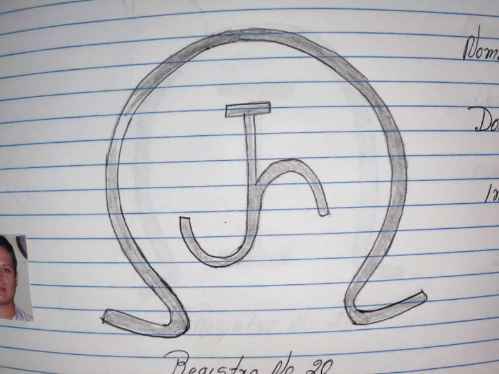 Nom
Do
Registro No 20